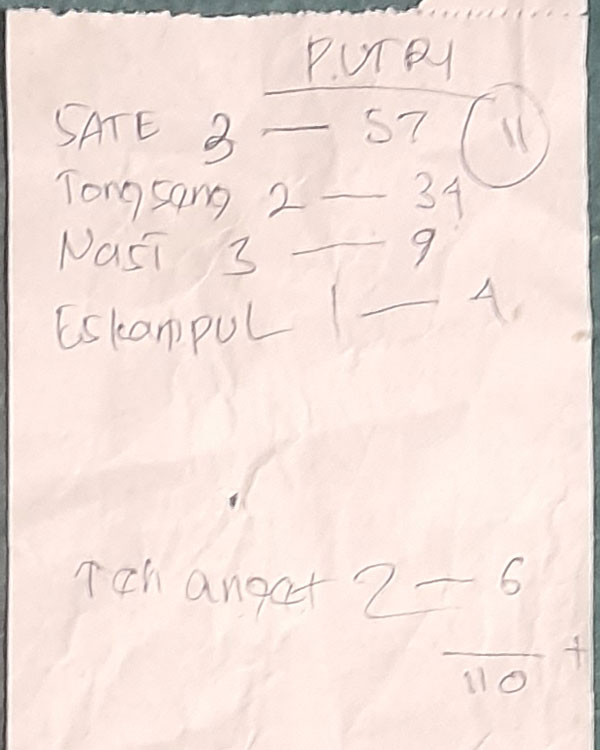 PUTRI
SATE 3 — 57 (11)
Tongsang 2 — 34
Nasi 3 — 9
Eskampul 1 — 4
Teh anget 2 — 6
110 +